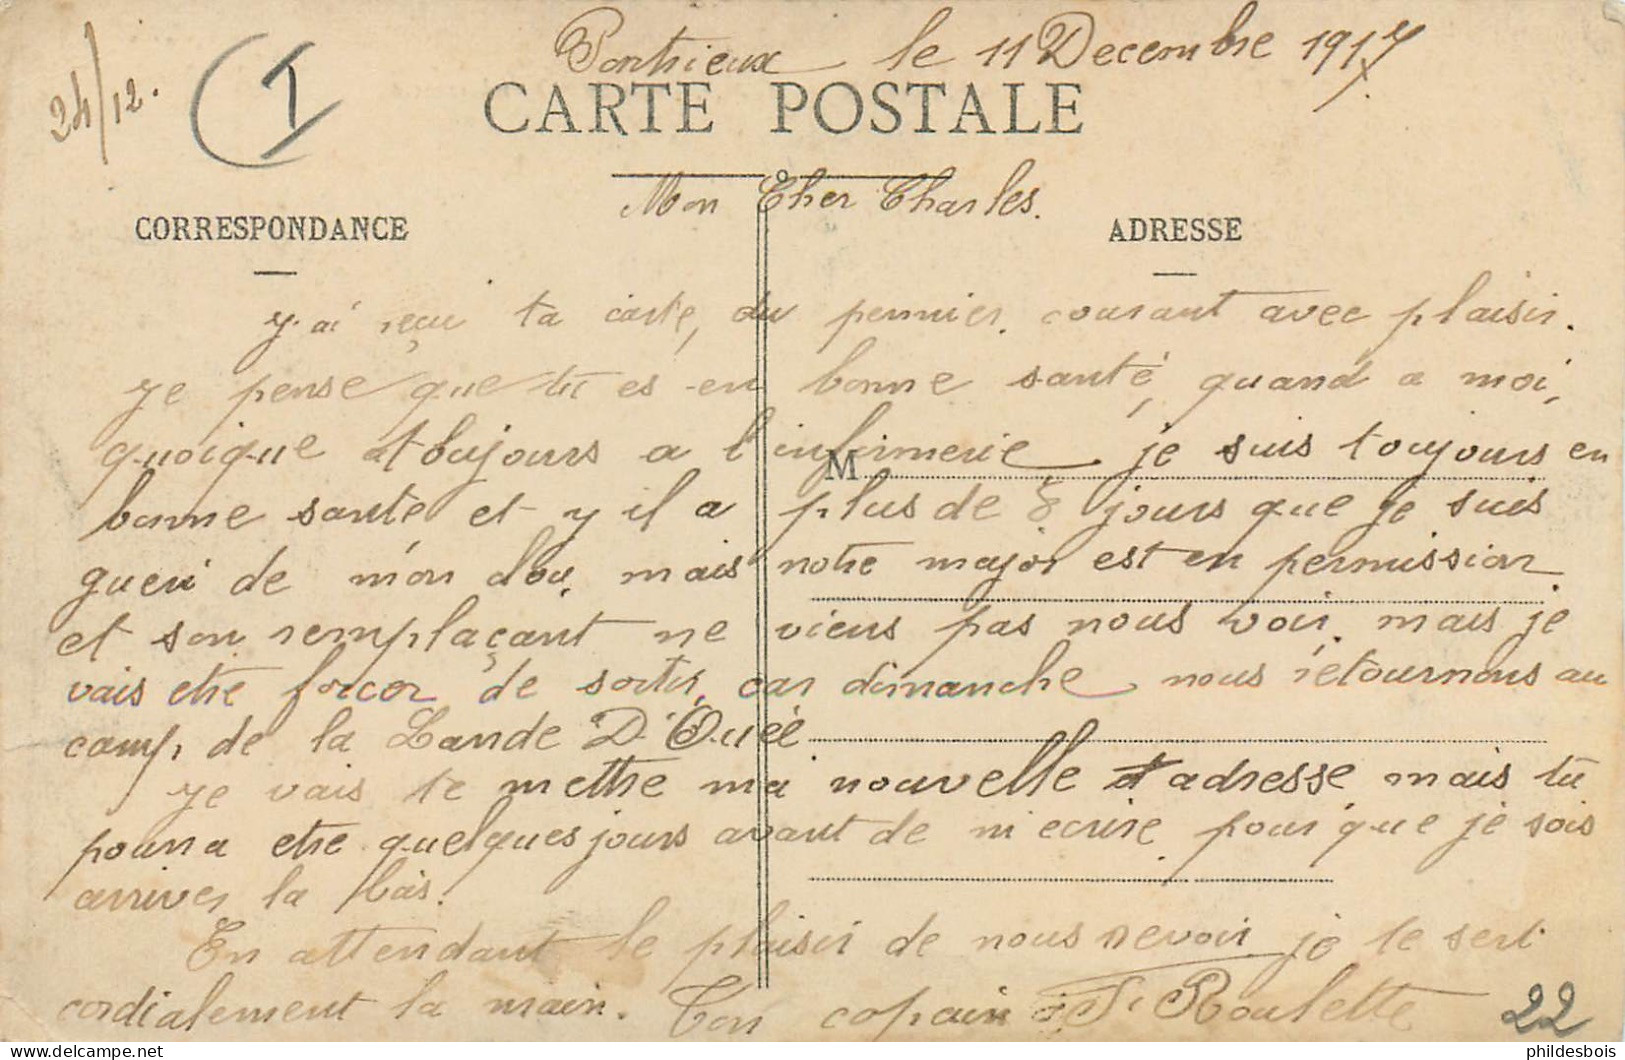 Pontrieux le 11 Decembre 1917
24/12.
I
CARTE POSTALE
Mon Cher Charles.
CORRESPONDANCE
ADRESSE
y.ai reçu ta carte, du permier courant avec plaisir.
ye pense que tu es en bonne santé, quand a moi,
quoique toujours a l'infirmerie je suis toujours en
M
bonne santé et y il a plus de 8 jours que je suis
gueri de mon mais notre major est en permission
et son remplaçant ne viens pas nous voir. mais je
vais etre forcer de sortir, car dimanche nous retournons au
camp, de la Lande D'Ouée
ye vais te mettre ma nouvelle adresse mais tu
pourra etre quelques jours avant de m'ecrire pour que je sois
arriver la bas.
En attendant le plaisir de nous revoir je te sert
cordialement la main. Ton copain Roulette
22
phildesbois
www.delcampe.net